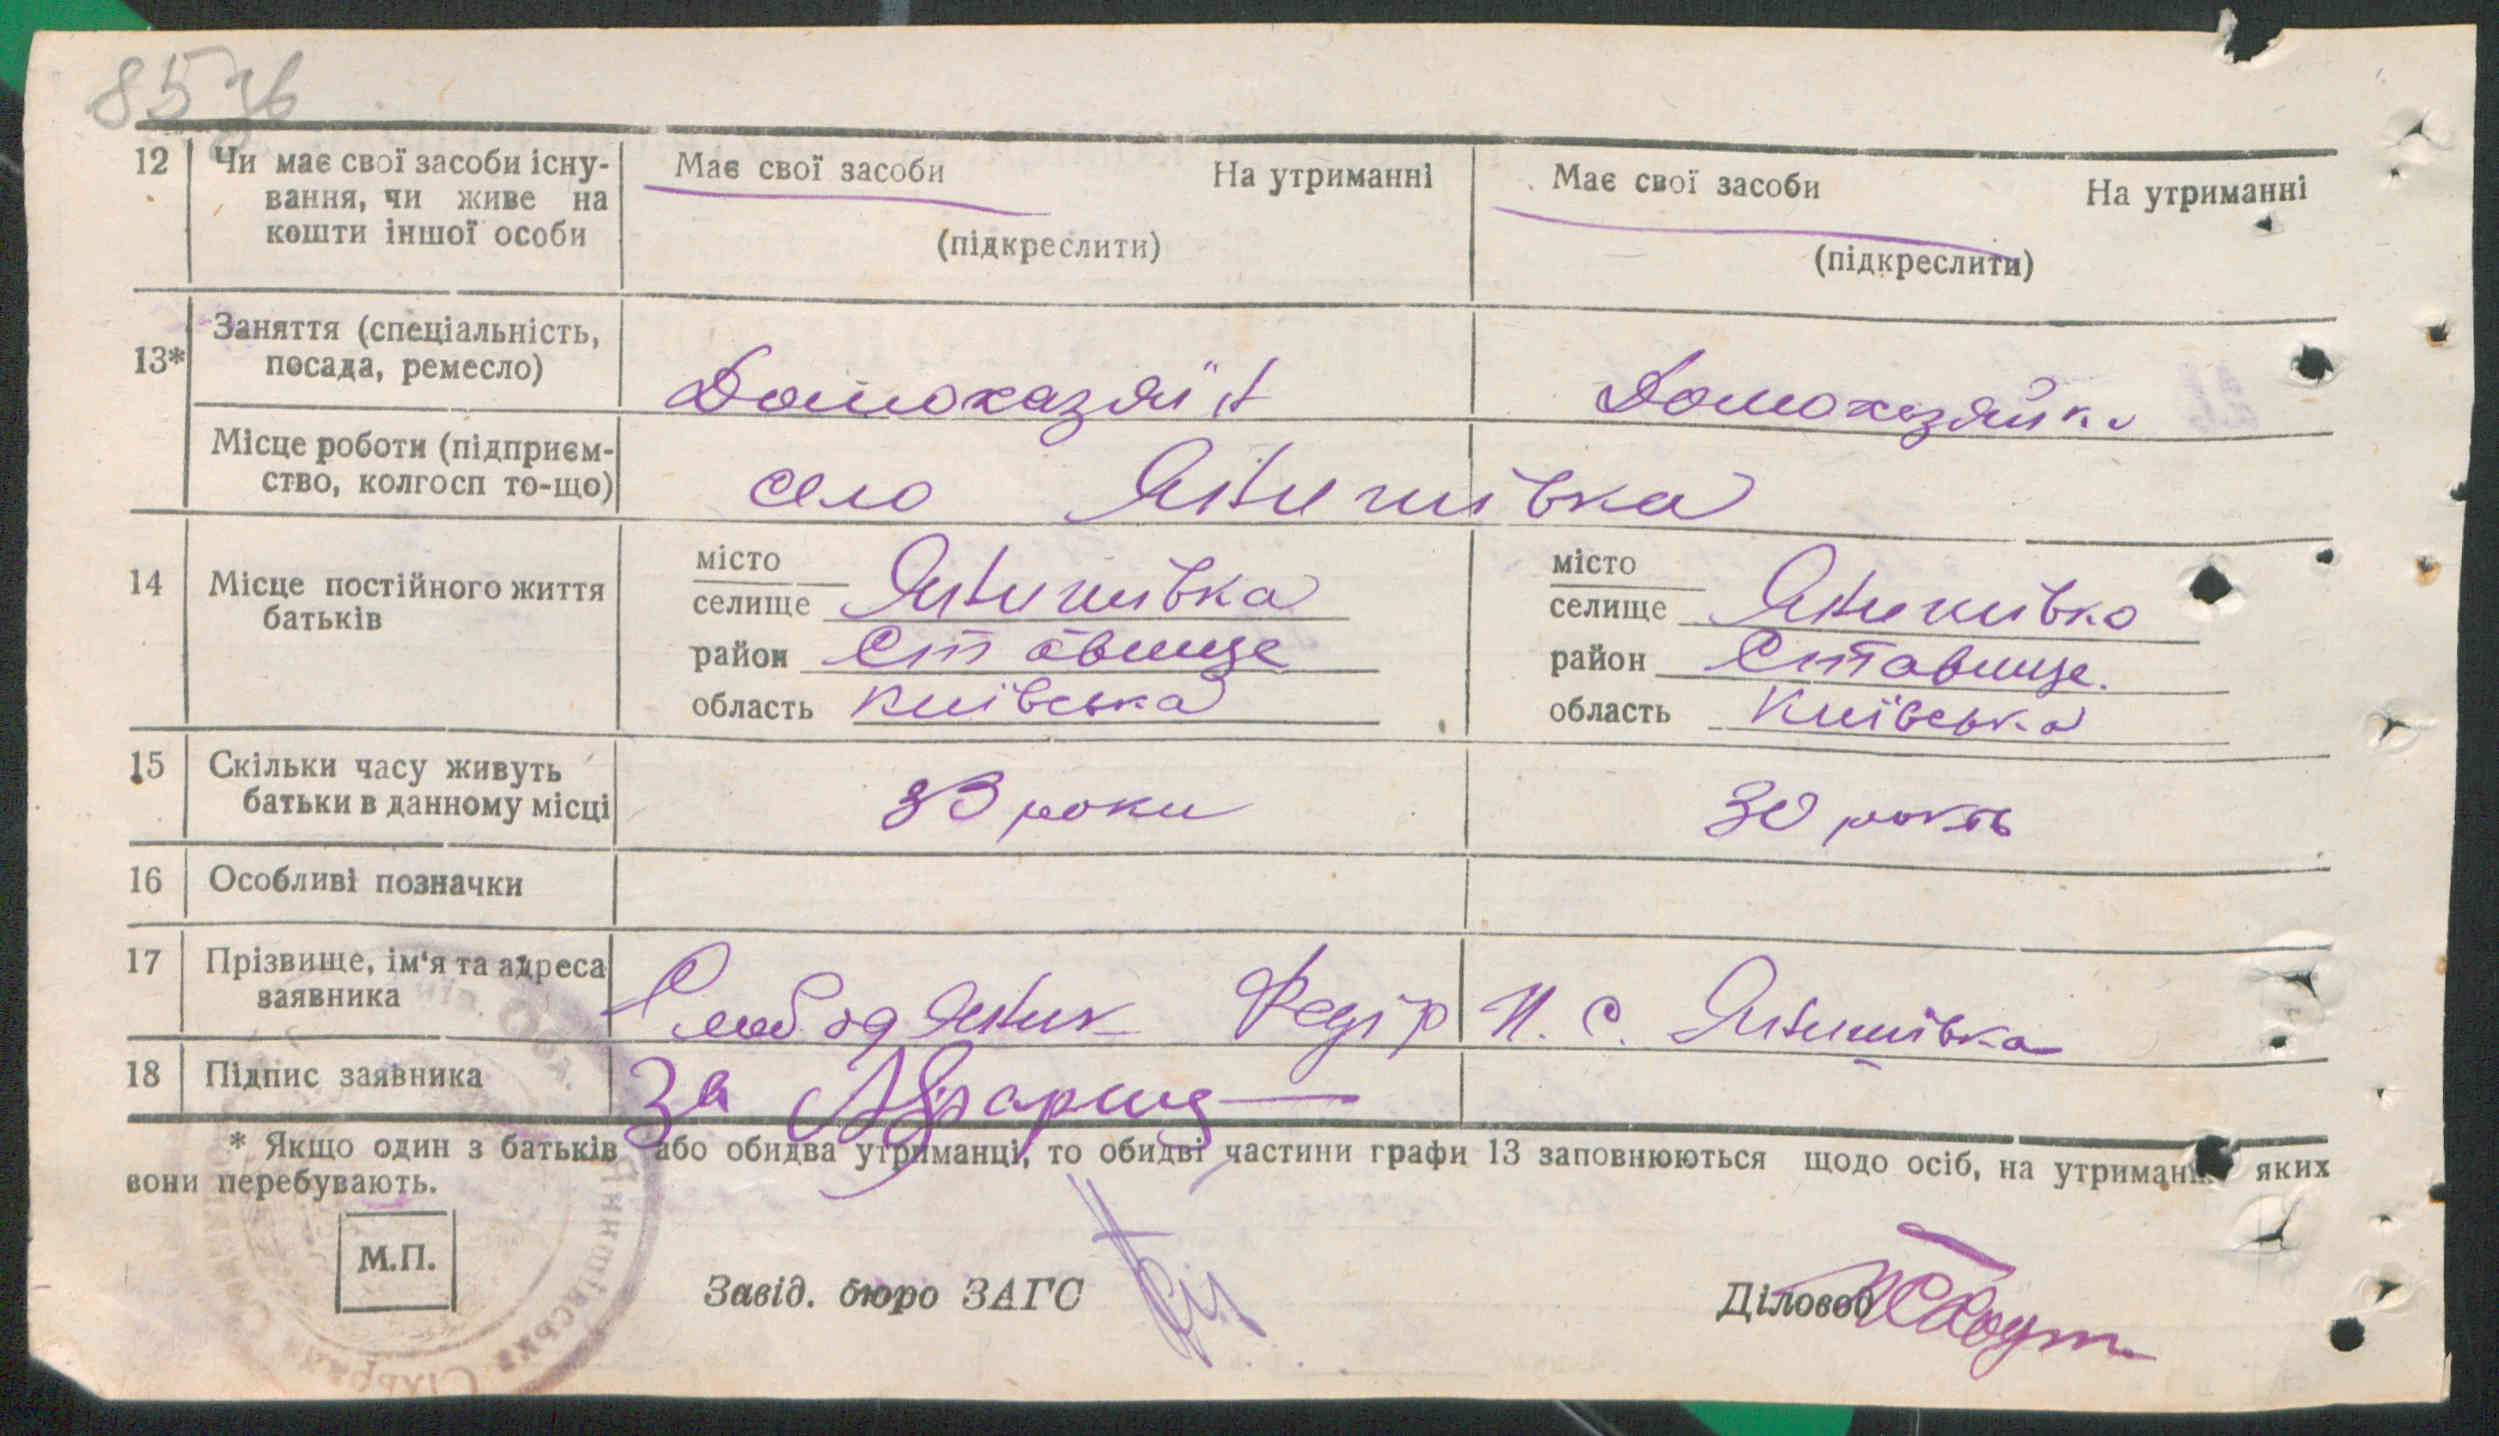 85 зв
12 Чи має свої засоби існу- Має свої засоби На утриманні Має свої засоби На утриманні
вання, чи живе на
кошти іншої особи (підкреслити) (підкреслити)
13* Заняття (спеціальність,
посада, ремесло) Домохазяїн Домохазяйка
Місце роботи (підприєм-
ство, колгосп то-що) село Янишівка
14 Місце постійного життя
батьків
місто місто
селище Янишівка селище Янишівка
район Ставище район Ставище.
область Київська область Київська
15 Скільки часу живуть
батьки в данному місці 33 роки 30 років
16 Особливі позначки
17 Прізвище, ім'я та адреса
заявника Слободяник Федір П. с. Янишівка
18 Підпис заявника За
* Якщо один з батьків або обидва утриманці, то обидві частини графи 13 заповнюються щодо осіб, на утриманні яких
вони перебувають.
М.П.
Завід. бюро ЗАГС Діловод
Янишівська Сільська